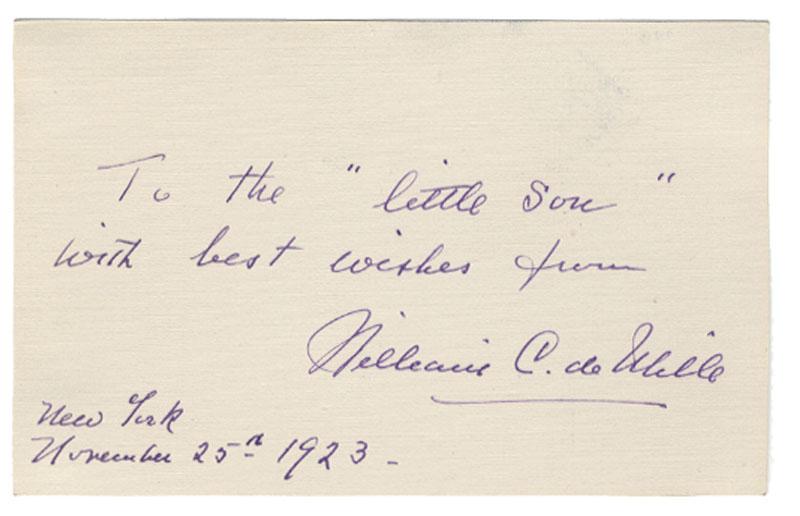 To the "little son"
with best wishes from
William C. de Mille
New York
November 25th 1923 -